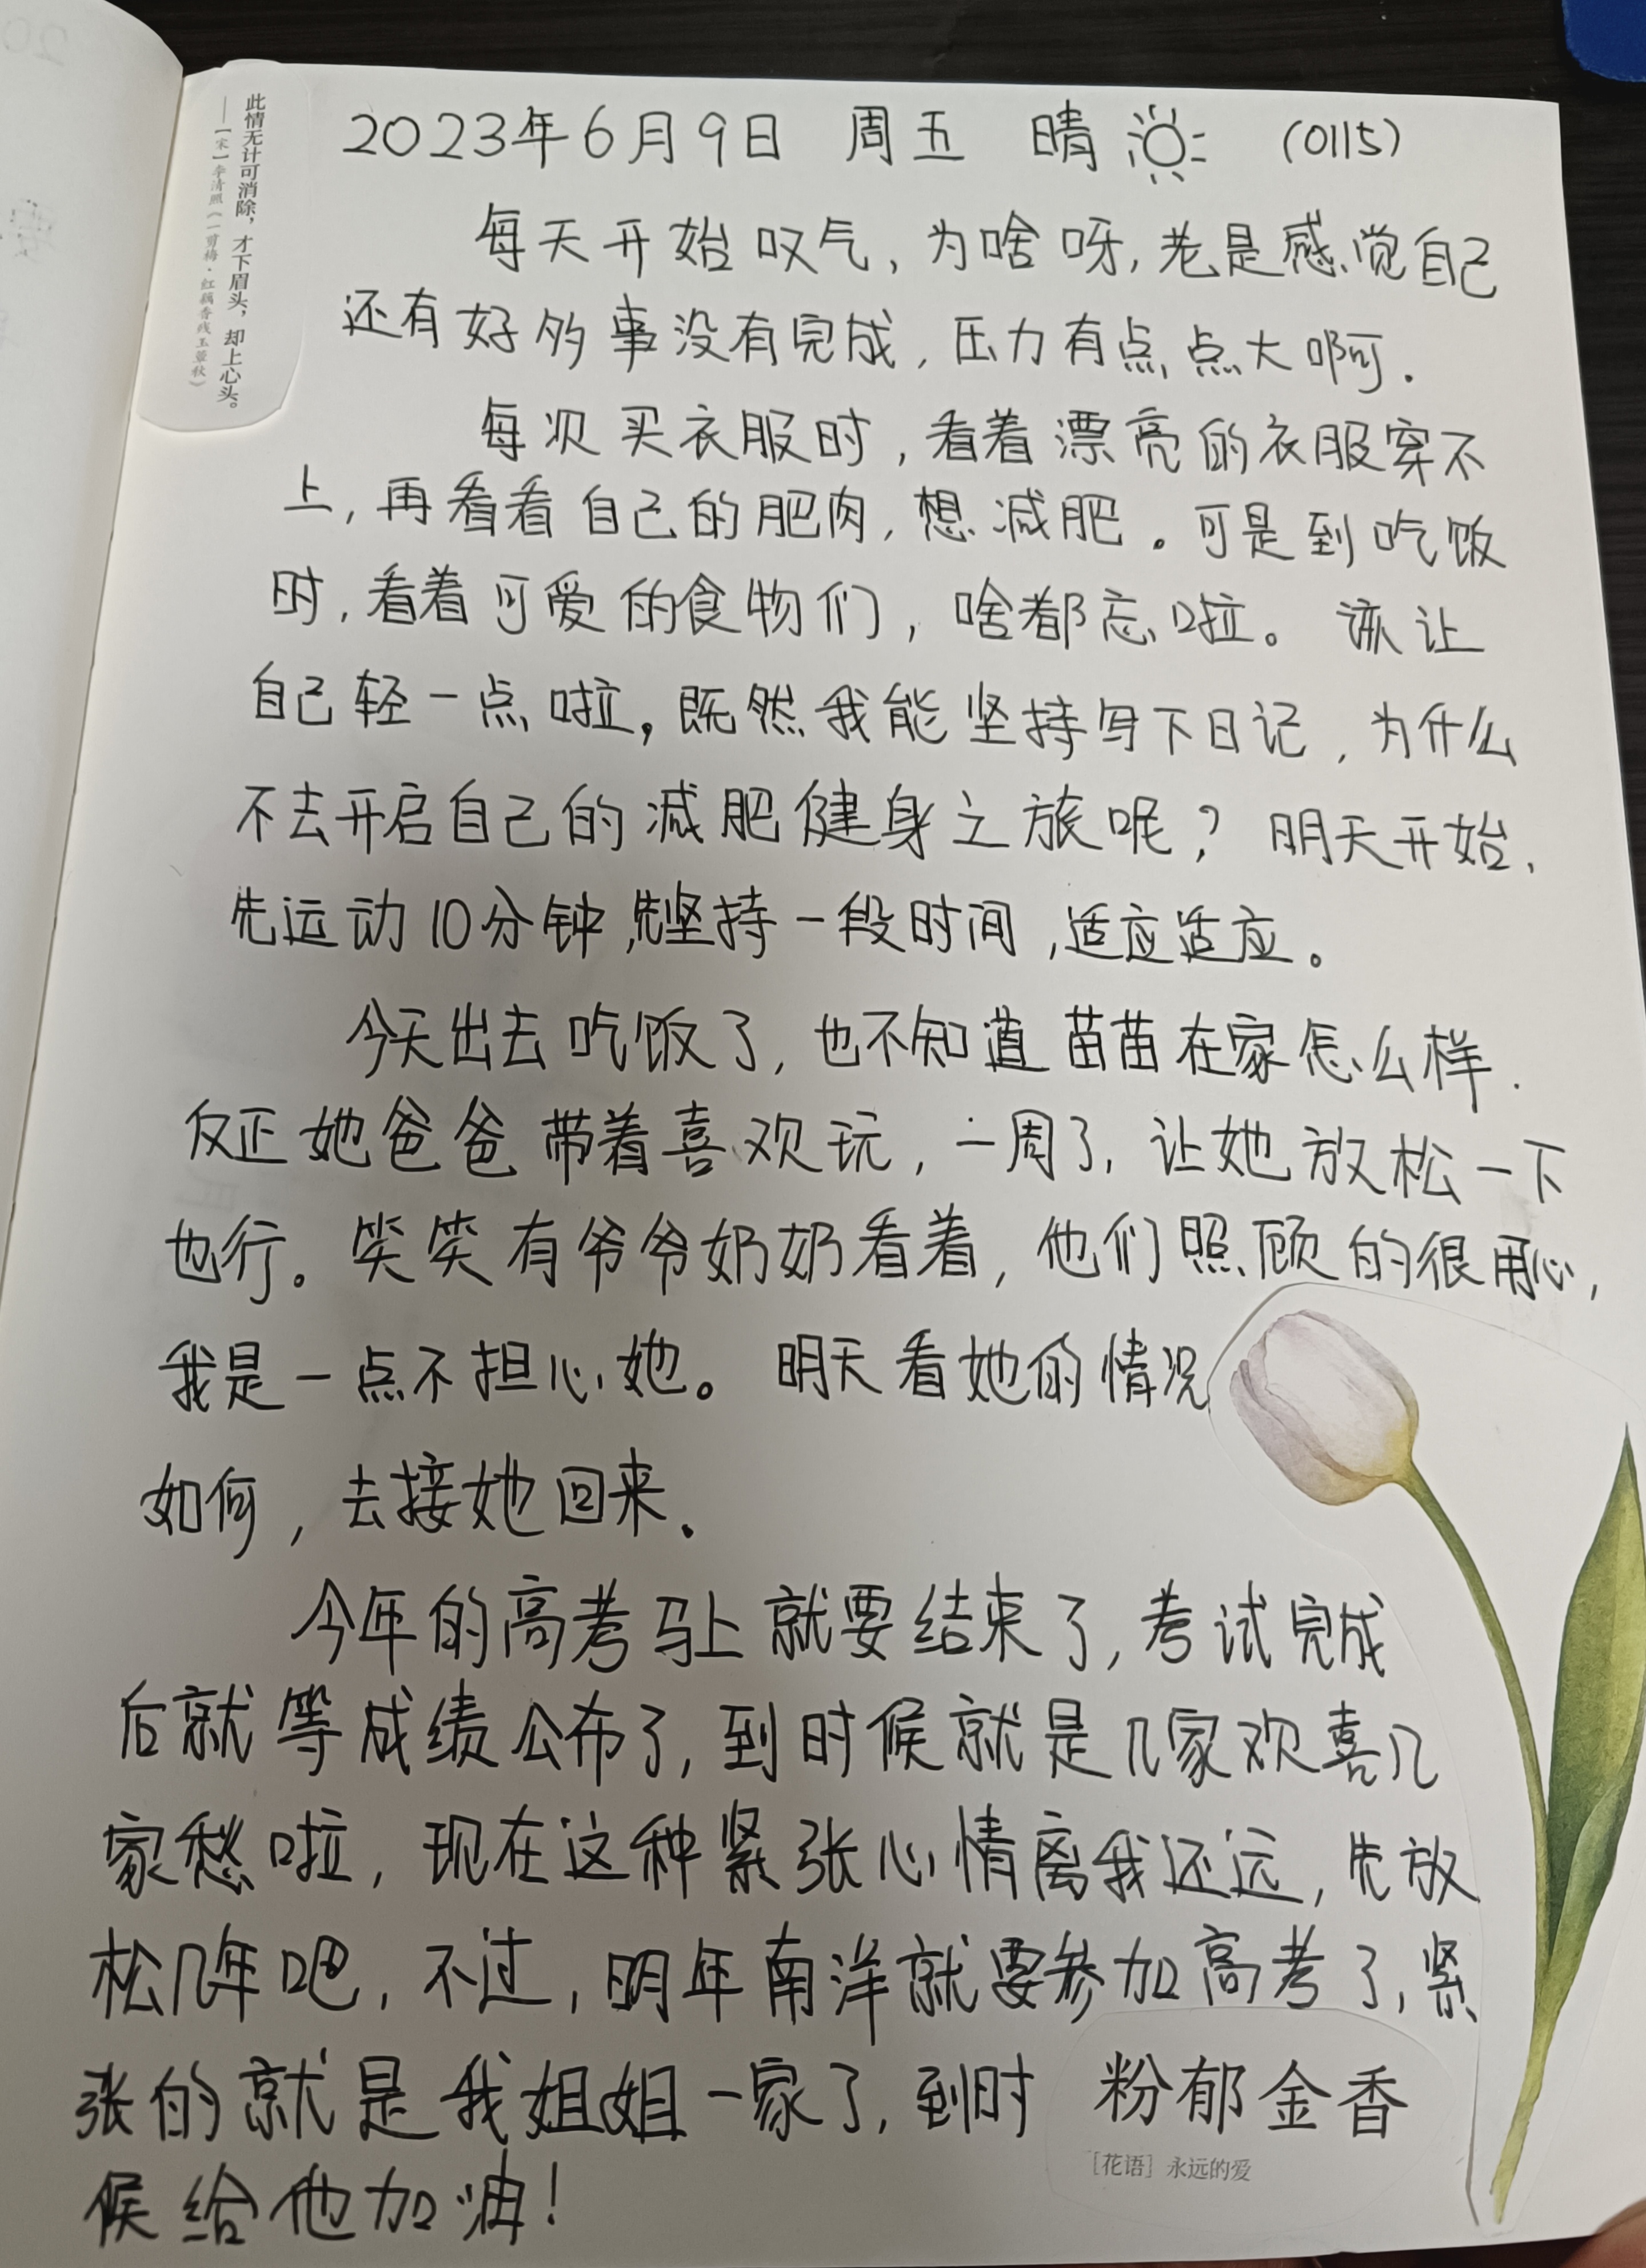 此情无计可消除，才下眉头，却上心头。
——［宋］李清照《一剪梅·红藕香残玉簟秋》
2023年6月9日 周五 晴 (0115)
每天开始叹气，为啥呀，老是感觉自己
还有好多事没有完成，压力有点点大啊.
每次买衣服时，看着漂亮的衣服穿不
上，再看看自己的肥肉，想减肥。可是到吃饭
时，看着可爱的食物们，啥都忘啦。该让
自己轻一点啦，既然我能坚持写下日记，为什么
不去开启自己的减肥健身之旅呢？明天开始，
先运动10分钟，先坚持一段时间，适应适应。
今天出去吃饭了，也不知道苗苗在家怎么样.
反正她爸爸带着喜欢玩，一周了，让她放松一下
也行。笑笑有爷爷奶奶看着，他们照顾的很用心，
我是一点不担心她。明天看她的情况
如何，去接她回来.
今年的高考马上就要结束了，考试完成
后就等成绩公布了，到时候就是几家欢喜几
家愁啦，现在这种紧张心情离我还远，先放
松几年吧，不过，明年南洋就要参加高考了，紧
张的就是我姐姐一家了，到时
候给他加油！
粉郁金香
［花语］永远的爱